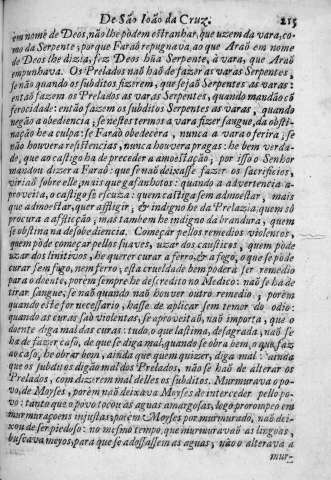 De São Ioão da Cruz. 215
em nome de Deos, não lhe podem estranhar, que uzem da vara, co-
mo da Serpente; porque Faraò repugnava, ao que Araõ em nome
de Deos lhe dizia, fez Deos hũa Serpente, à vara, que Araõ
empunhava. Os Prelados naõ haõ de fazer as varas Serpentes,
se não quando os subditos fizerem, que sejaõ Serpentes as varas:
entaõ fazem os Prelados as varas Serpentes, quando mandão cõ
ferocidade: então fazem os subditos Serpentes as varas, quando
negão a obediencia; se nestes termos a vara fizer sangue, da obsti-
nação he a culpa: se Faraò obedecèra, nunca a vara o ferira; se
não houvera resistencias, nunca houvera pragas: he bem verda-
de, que ao castigo ha de preceder a amoestação; por isso o Senhor
mandou dizer a Faraò: que se não deixasse fazer os sacrificios,
viriaõ sobre elle, mais que gafanhotos: quando a advertencia a-
proveita, o castigo se escuza: quem castiga sem admoestar, mais
que admoestar, quer affligir, & indigno he da Prelazia, quem só
procura a aflicção; mas tambem he indigno da brandura, quem
se obstina na desobediencia. Começar pellos remedios violentos,
quem pòde começar pellos suaves, uzar dos causticos, quem pòde
uzar dos linitivos, he querer curar a ferro, & a fogo, o que se pòde
curar sem fogo, nem ferro; esta crueldade bem poderà ser remedio
para o doente, porèm sempre he descredito no Medico: não se ha de
tirar sangue, se não quando não houver outro remedio; porèm
quando este for necessario, hasse de applicar sem temor do odio:
quando as curas saõ violentas, se aproveitaõ, naõ importa, que o
doente diga mal das curas: tudo, o que lastima, desagrada, naõ se
ha de fazer caso, de que se diga mal, quando se obra bem, o que faz
ao caso, he obrar bem, ainda que quem quizer, diga mal: ainda
que os subditos digão mal dos Prelados, não se haõ de alterar os
Prelados, com dizerem mal delles os subditos. Murmurava o po-
vo, de Moyses, porèm naõ deixava Moyses de interceder pello po-
vo: tanto que o povo tocou as aguas amargosas, logo prorompeo em
murmuraçoens injustas; porèm Moyses por murmurado, naõ dei-
xou de ser piedoso: no mesmo tempo, que murmuravaõ as lingoas,
buscava meyos, para que se adossassem as aguas; não o alterava a
mur-